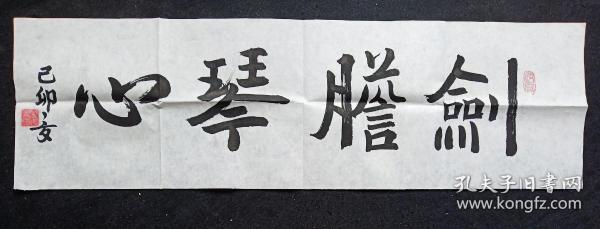 劍膽琴心
己卯
孔夫子旧書网
www.kongfz.com